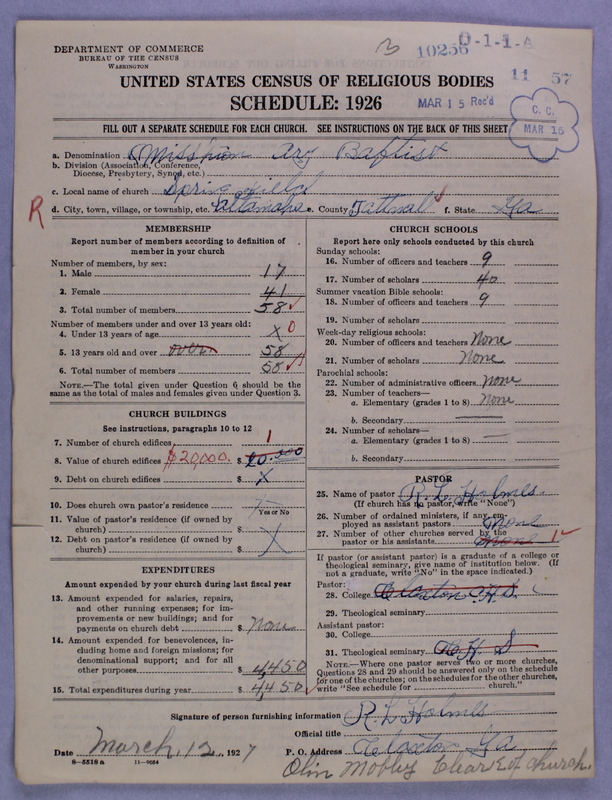 DEPARTMENT OF COMMERCE
BUREAU OF THE CENSUS
WASHINGTON
3 10256 0-1-1-A
11 57
UNITED STATES CENSUS OF RELIGIOUS BODIES
SCHEDULE: 1926
MAR 15 Rec'd
C. C.
MAR 16
FILL OUT A SEPARATE SCHEDULE FOR EACH CHURCH. SEE INSTRUCTIONS ON THE BACK OF THIS SHEET
a. Denomination Misshion Ary Baptist
b. Division (Association, Conference, Diocese, Presbytery, Synod, etc.)
c. Local name of church Springfield
R d. City, town, village, or township, etc. Altamaha e. County Tattnall f. State Ga
MEMBERSHIP
Report number of members according to definition of member in your church
Number of members, by sex:
1. Male 17
2. Female 41
3. Total number of members 58
Number of members under and over 13 years old:
4. Under 13 years of age X 0
5. 13 years old and over 58
6. Total number of members 58
NOTE.—The total given under Question 6 should be the same as the total of males and females given under Question 3.
CHURCH BUILDINGS
See instructions, paragraphs 10 to 12
7. Number of church edifices 1
8. Value of church edifices $20000. $
9. Debt on church edifices $ X
10. Does church own pastor's residence
Yes or No
11. Value of pastor's residence (if owned by church) $
12. Debt on pastor's residence (if owned by church) $ X
EXPENDITURES
Amount expended by your church during last fiscal year
13. Amount expended for salaries, repairs, and other running expenses; for improvements or new buildings; and for payments on church debt $ None
14. Amount expended for benevolences, including home and foreign missions; for denominational support; and for all other purposes $ 4450
15. Total expenditures during year $ 4450
CHURCH SCHOOLS
Report here only schools conducted by this church
Sunday schools:
16. Number of officers and teachers 9
17. Number of scholars 40
Summer vacation Bible schools:
18. Number of officers and teachers 9
19. Number of scholars
Week-day religious schools:
20. Number of officers and teachers None
21. Number of scholars None
Parochial schools:
22. Number of administrative officers None
23. Number of teachers—
a. Elementary (grades 1 to 8) None
b. Secondary
24. Number of scholars—
a. Elementary (grades 1 to 8)
b. Secondary
PASTOR
25. Name of pastor R. L. Holmes
(If church has no pastor, write "None")
26. Number of ordained ministers, if any, employed as assistant pastors None
27. Number of other churches served by the pastor or his assistants None
If pastor (or assistant pastor) is a graduate of a college or theological seminary, give name of institution below. (If not a graduate, write "No" in the space indicated.)
Pastor:
28. College Claxton H.S.
29. Theological seminary
Assistant pastor:
30. College
31. Theological seminary
NOTE.—Where one pastor serves two or more churches, Questions 28 and 29 should be answered only on the schedule for one of the churches; on the schedules for the other churches, write "See schedule for church."
Signature of person furnishing information R L Holmes
Official title
Date March, 12, 1927 P. O. Address Claxton Ga
8—5518a 11—9064
Olin Mobley Cleark of church.